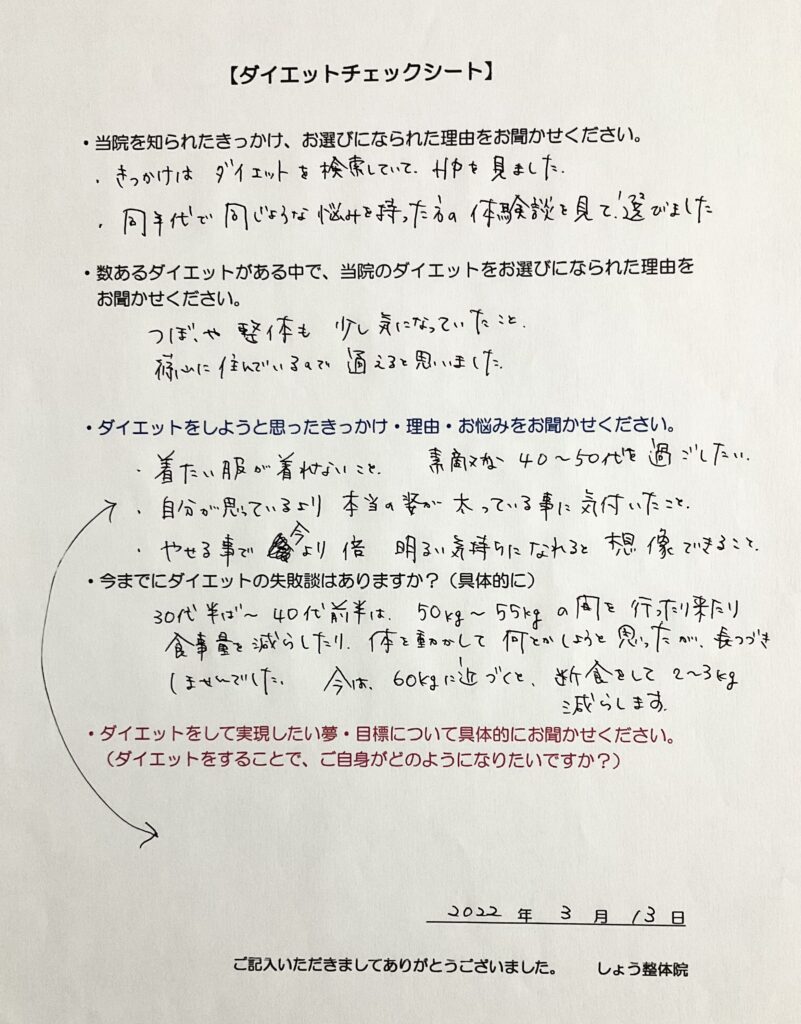 【ダイエットチェックシート】
・当院を知られたきっかけ、お選びになられた理由をお聞かせください。
・きっかけは ダイエットを検索していて、HPを見ました。
・同年代で同じような悩みを持った方の体験談を見て、選びました
・数あるダイエットがある中で、当院のダイエットをお選びになられた理由を
お聞かせください。
つぼ、や 整体も 少し気になっていたこと、
篠山に住んでいるので 通えると思いました。
・ダイエットをしようと思ったきっかけ・理由・お悩みをお聞かせください。
・着たい服が着れないこと、 素敵な 40〜50代を過ごしたい。
・自分が思っているより 本当の姿が 太っている事に気付いたこと。
・やせる事で 今より 倍 明るい気持ちになれると想像できること。
・今までにダイエットの失敗談はありますか？（具体的に）
30代半ば〜40代前半は、50kg〜55kgの間を行ったり来たり
食事量を減らしたり、体を動かして何とかしようと思ったが、長つづき
しませんでした。 今は、60kgに近づくと、断食をして2〜3kg
減らします。
・ダイエットをして実現したい夢・目標について具体的にお聞かせください。
（ダイエットをすることで、ご自身がどのようになりたいですか？）
2022 年 3 月 13 日
ご記入いただきましてありがとうございました。 しょう整体院